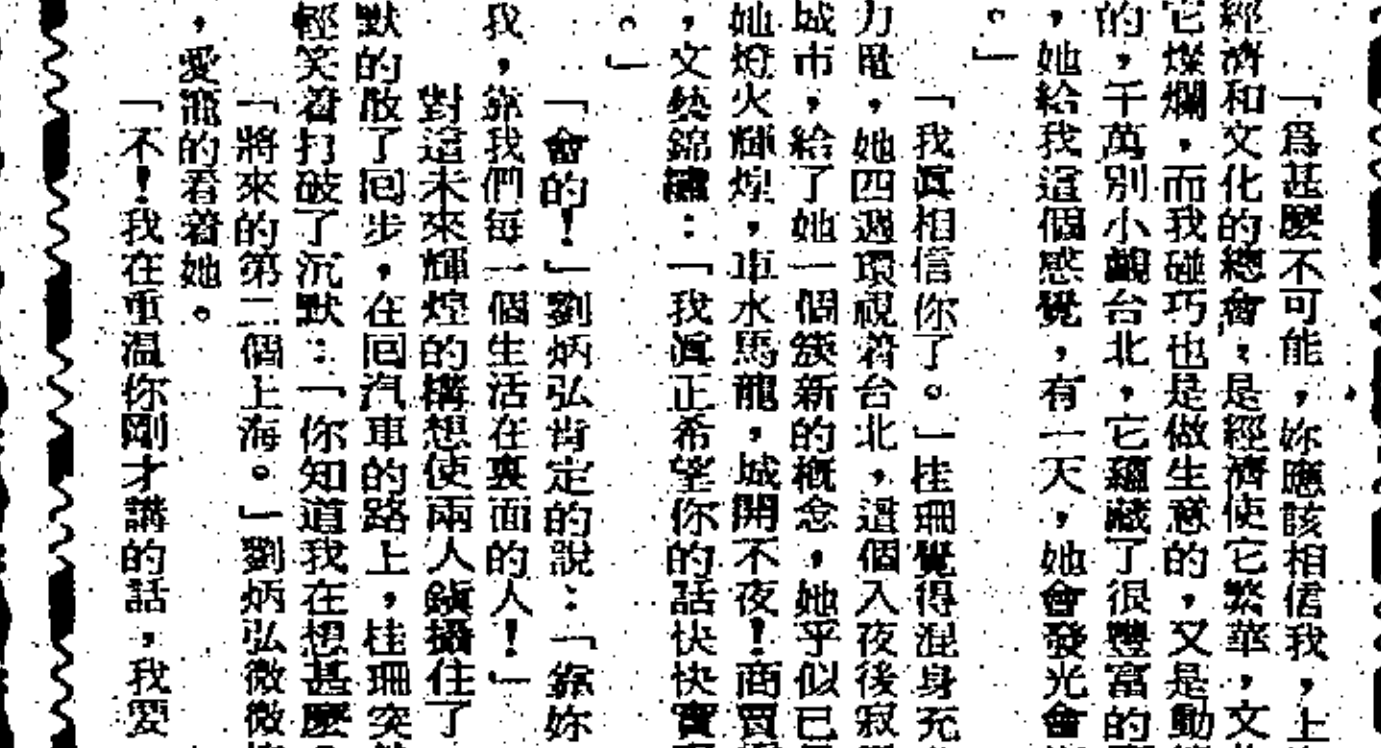 「爲甚麼不可能，妳應該相信我，上
經濟和文化的總會，是經濟使它繁華，文
它燦爛，而我碰巧也是做生意的，又是動
的，千萬別小覷台北，它蘊藏了很豐富的
，她給我這個感覺，有一天，她會發光會
。」
「我眞相信你了。」桂珊覺得混身充
力電，她四週環視着台北，這個入夜後寂
城市，給了她一個簇新的概念，她乎似已
她燈火輝煌，車水馬龍，城開不夜！商買
，文藝錦繡：「我眞正希望你的話快快實
。」
「會的！」劉炳弘肯定的說：「靠妳
我，靠我們每一個生活在裏面的人！」
對這未來輝煌的構想使兩人鎮攝住了
默的散了囘步，在囘汽車的路上，桂珊突
輕笑着打破了沉默：「你知道我在想甚麼
「將來的第二個上海。」劉炳弘微微
，愛寵的看着她。
「不！我在重温你剛才講的話，我要